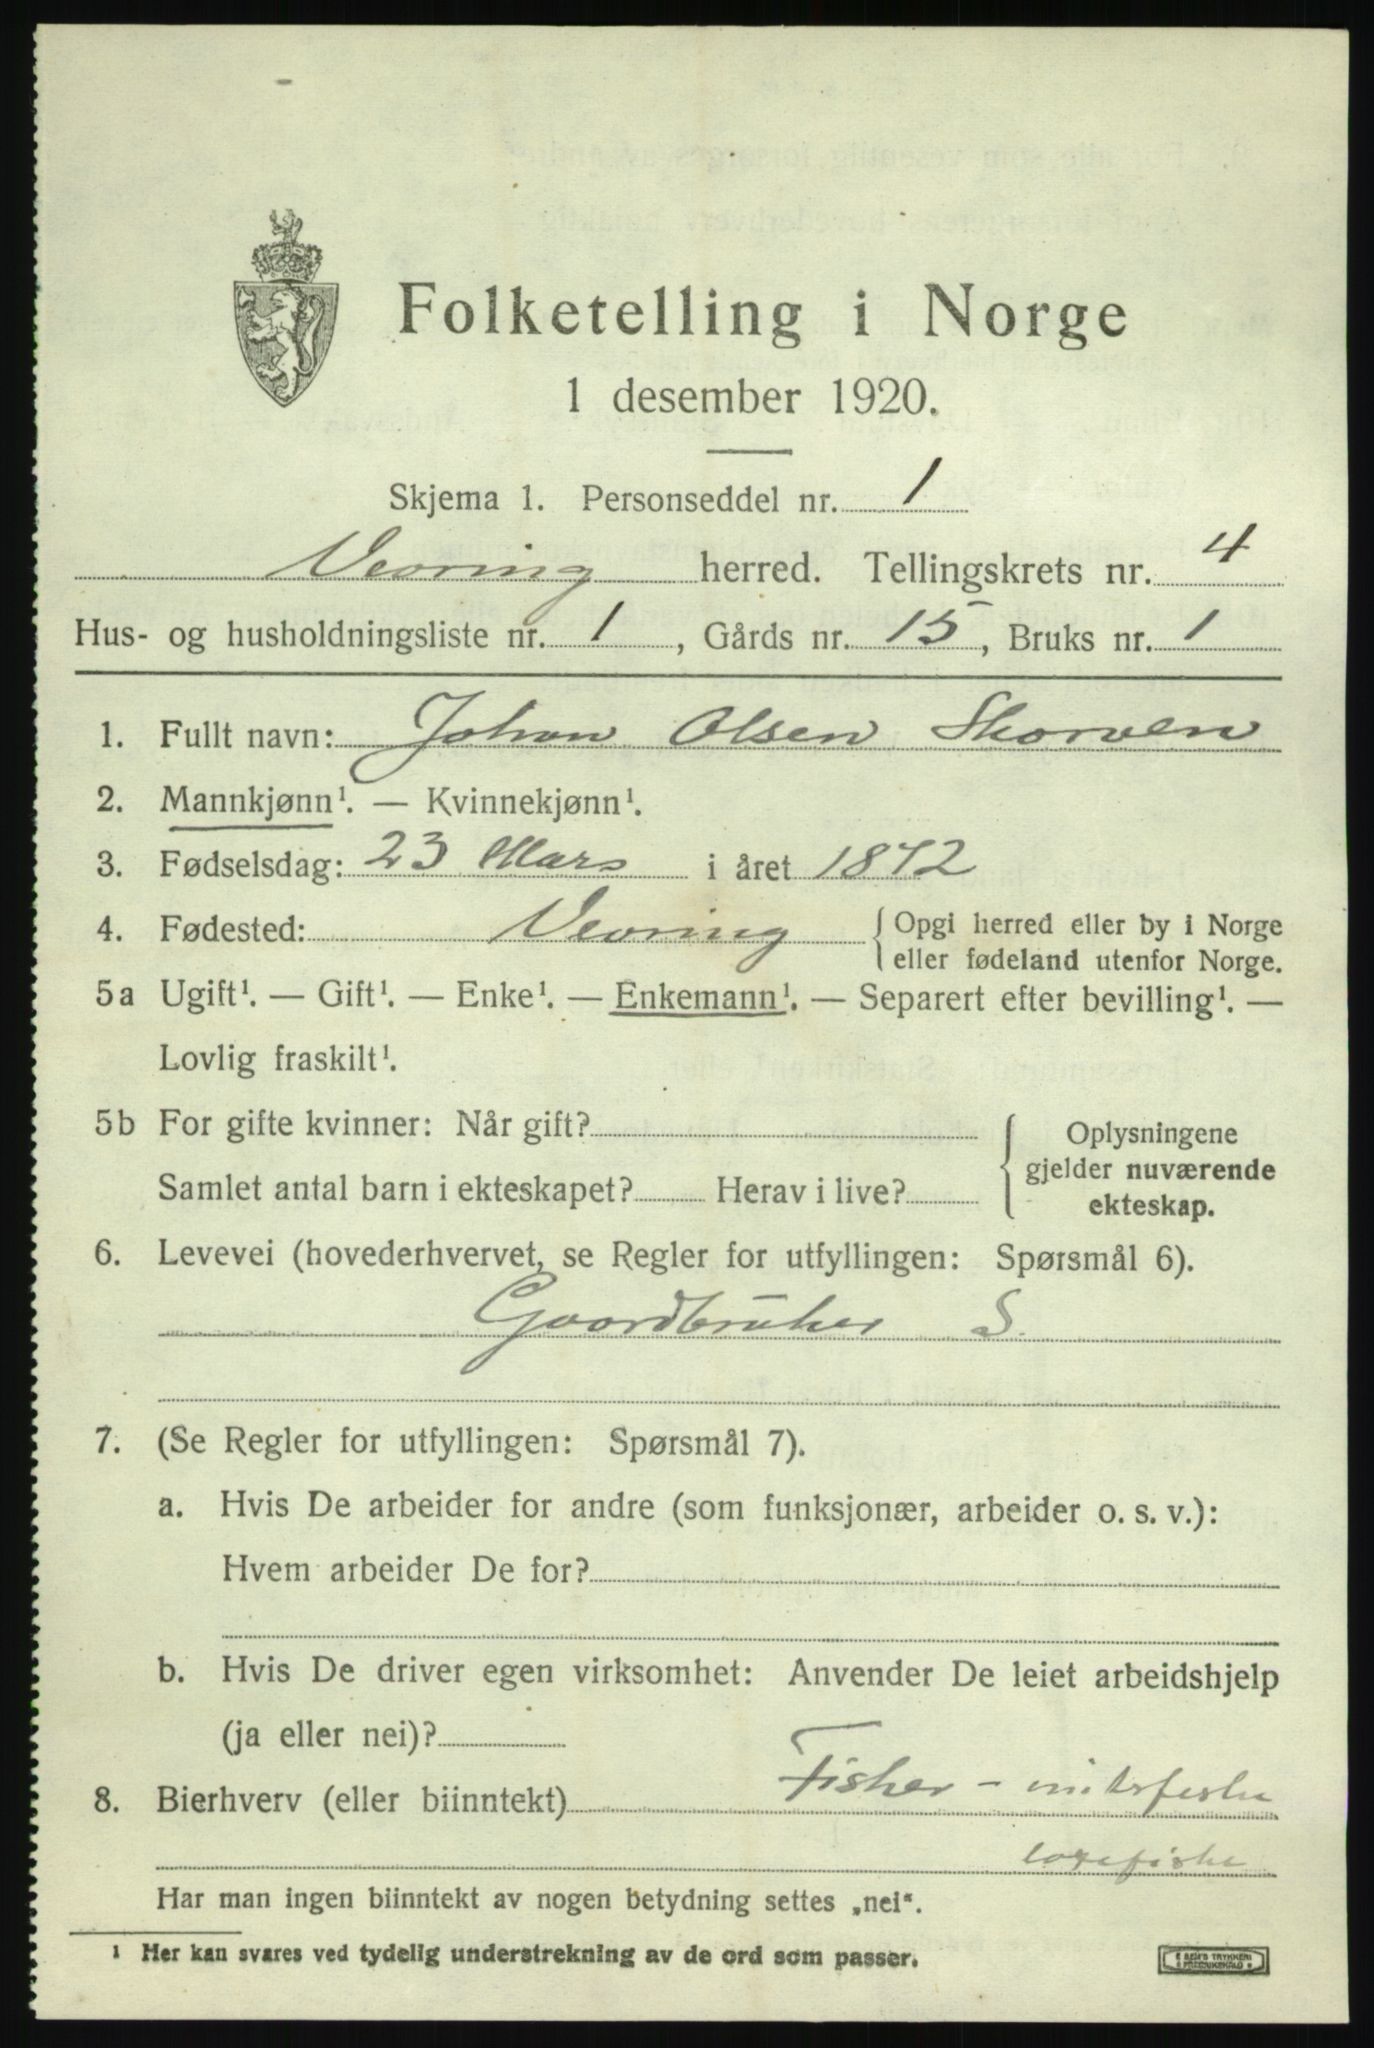 Folketelling i Norge
1 desember 1920.
Skjema 1. Personseddel nr. 1
Vevring herred. Tellingskrets nr. 4
Hus- og husholdningsliste nr. 1, Gårds nr. 15, Bruks nr. 1
1. Fullt navn: Johan Olsen Skorven
2. Mannkjønn¹. — Kvinnekjønn¹.
3. Fødselsdag: 23 Mars i året 1872
4. Fødested: Vevring {Opgi herred eller by i Norge
eller fødeland utenfor Norge.
5a Ugift¹. — Gift¹. — Enke¹. — Enkemann¹. — Separert efter bevilling¹. —
Lovlig fraskilt¹.
5b For gifte kvinner: Når gift?
Samlet antal barn i ekteskapet? Herav i live?
{Oplysningene
gjelder nuværende
ekteskap.
6. Levevei (hovederhvervet, se Regler for utfyllingen: Spørsmål 6).
Gaardbruker S.
7. (Se Regler for utfyllingen: Spørsmål 7).
a. Hvis De arbeider for andre (som funksjonær, arbeider o. s. v.):
Hvem arbeider De for?
b. Hvis De driver egen virksomhet: Anvender De leiet arbeidshjelp
(ja eller nei)?
8. Bierhverv (eller biinntekt) Fisker -
Har man ingen biinntekt av nogen betydning settes „nei“.
¹ Her kan svares ved tydelig understrekning av de ord som passer.